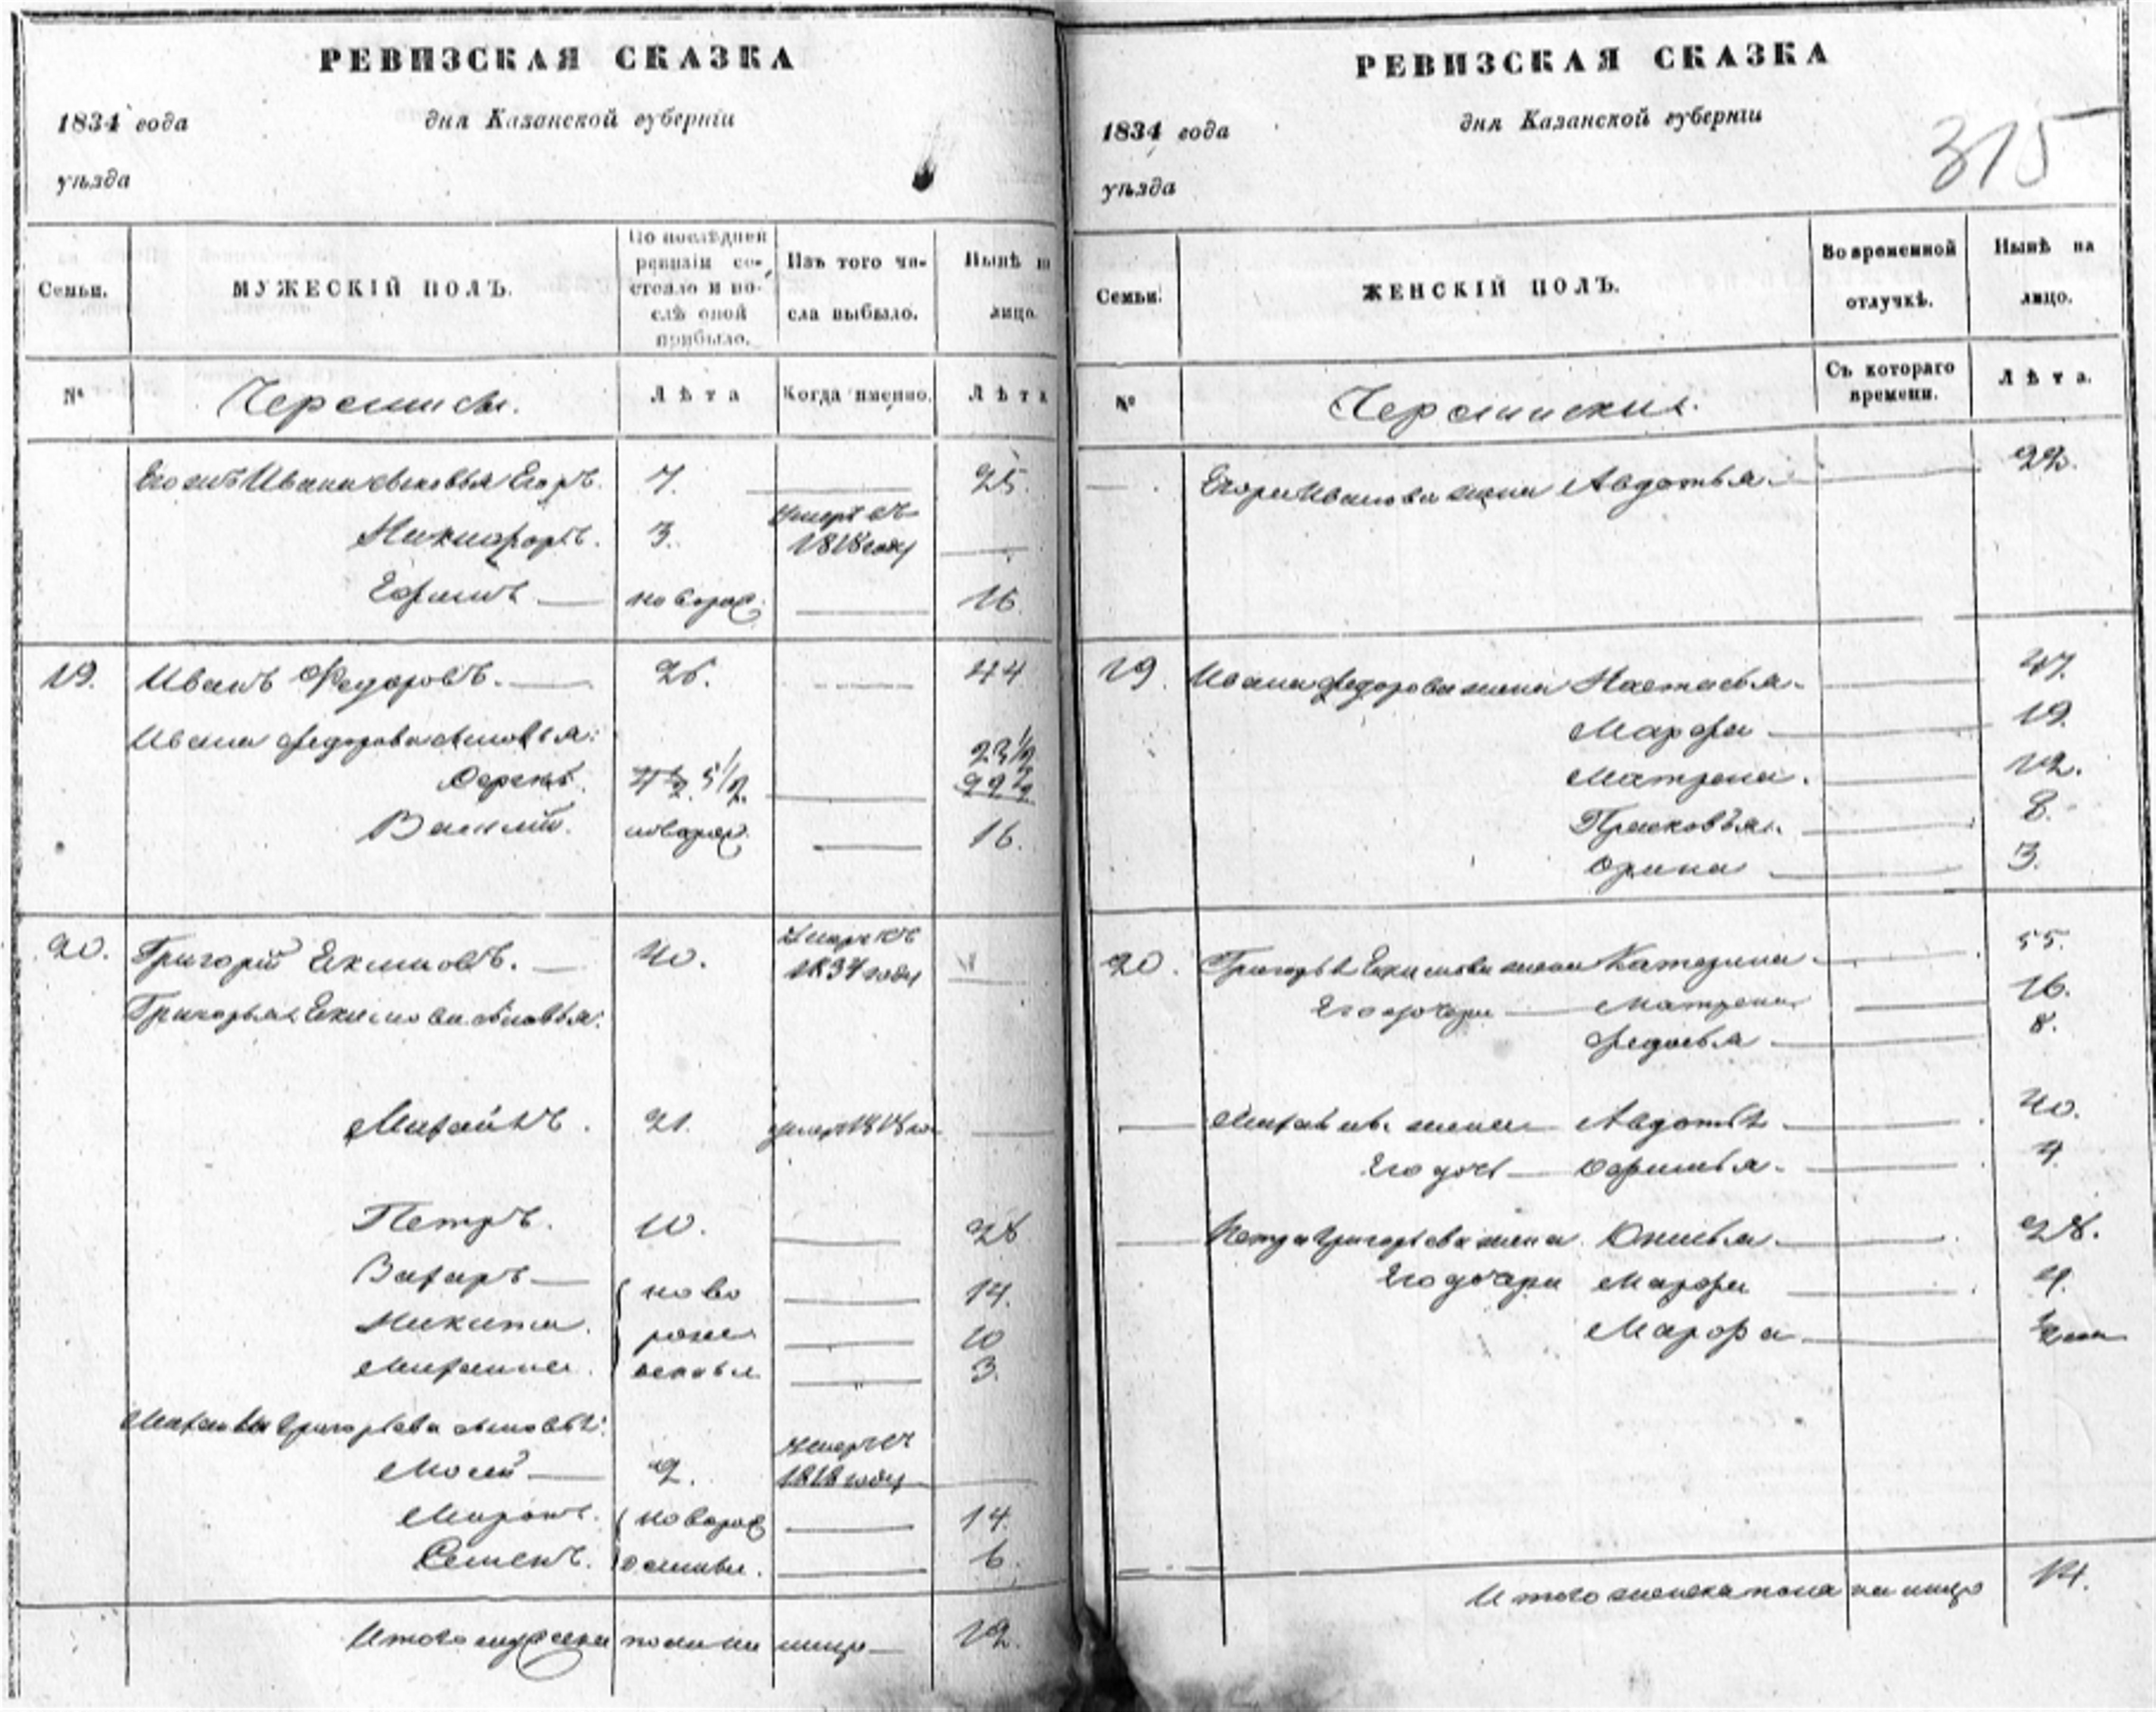 РЕВИЗСКАЯ СКАЗКА
1834 года дня Казанской губерніи
уѣзда
Семьи. МУЖЕСКІЙ ПОЛЪ. По послѣдней ревизіи состояло и послѣ оной прибыло. Изъ того числа выбыло. Нынѣ на лицо.
№ Черемисы. Лѣта Когда именно. Лѣта
Его сыновья Егоръ. 7. 25.
Никифоръ. 3. умеръ въ 1818 году
Ефимъ новорож. 16.
19. Иванъ Федоровъ. 26. 44
Ивана Федорова сыновья:
Сергѣй. 4½ 5½. 23½ 22½
Василій. новорож. 16.
20. Григорій Екимовъ. 40. умеръ въ 1834 году
Григорья Екимова сыновья:
21. умеръ 1818 го
Петръ. 10. 28
Захаръ ново 14.
Микита. рож 10
3.
Григорьева сыновья:
Мосей 2. умеръ въ 1818 году
Миронъ. новорож 14.
Семенъ. 6.
Итого мужеска пола на лицо 12.
РЕВИЗСКАЯ СКАЗКА
315
1834 года дня Казанской губерніи
уѣзда
Семьи. ЖЕНСКІЙ ПОЛЪ. Во временной отлучкѣ. Нынѣ на лицо.
№ Черемиски. Съ котораго времени. Лѣта.
Егора Иванова жена Авдотья. 22.
19. Ивана Федорова жена Настасья. 47.
Марфа 19.
Матрена. 12.
Прасковья. 8.
Орина 3.
20. Григорья Екимова жена Катерина 55.
Его дочери Матрена 16.
Федосья 8.
жена Авдотья 40.
Его дочь Офимья. 4.
Петра Григорьева жена 28.
Его дочери Марфа 4.
Марфа ½
Итого женска пола на лицо 14.